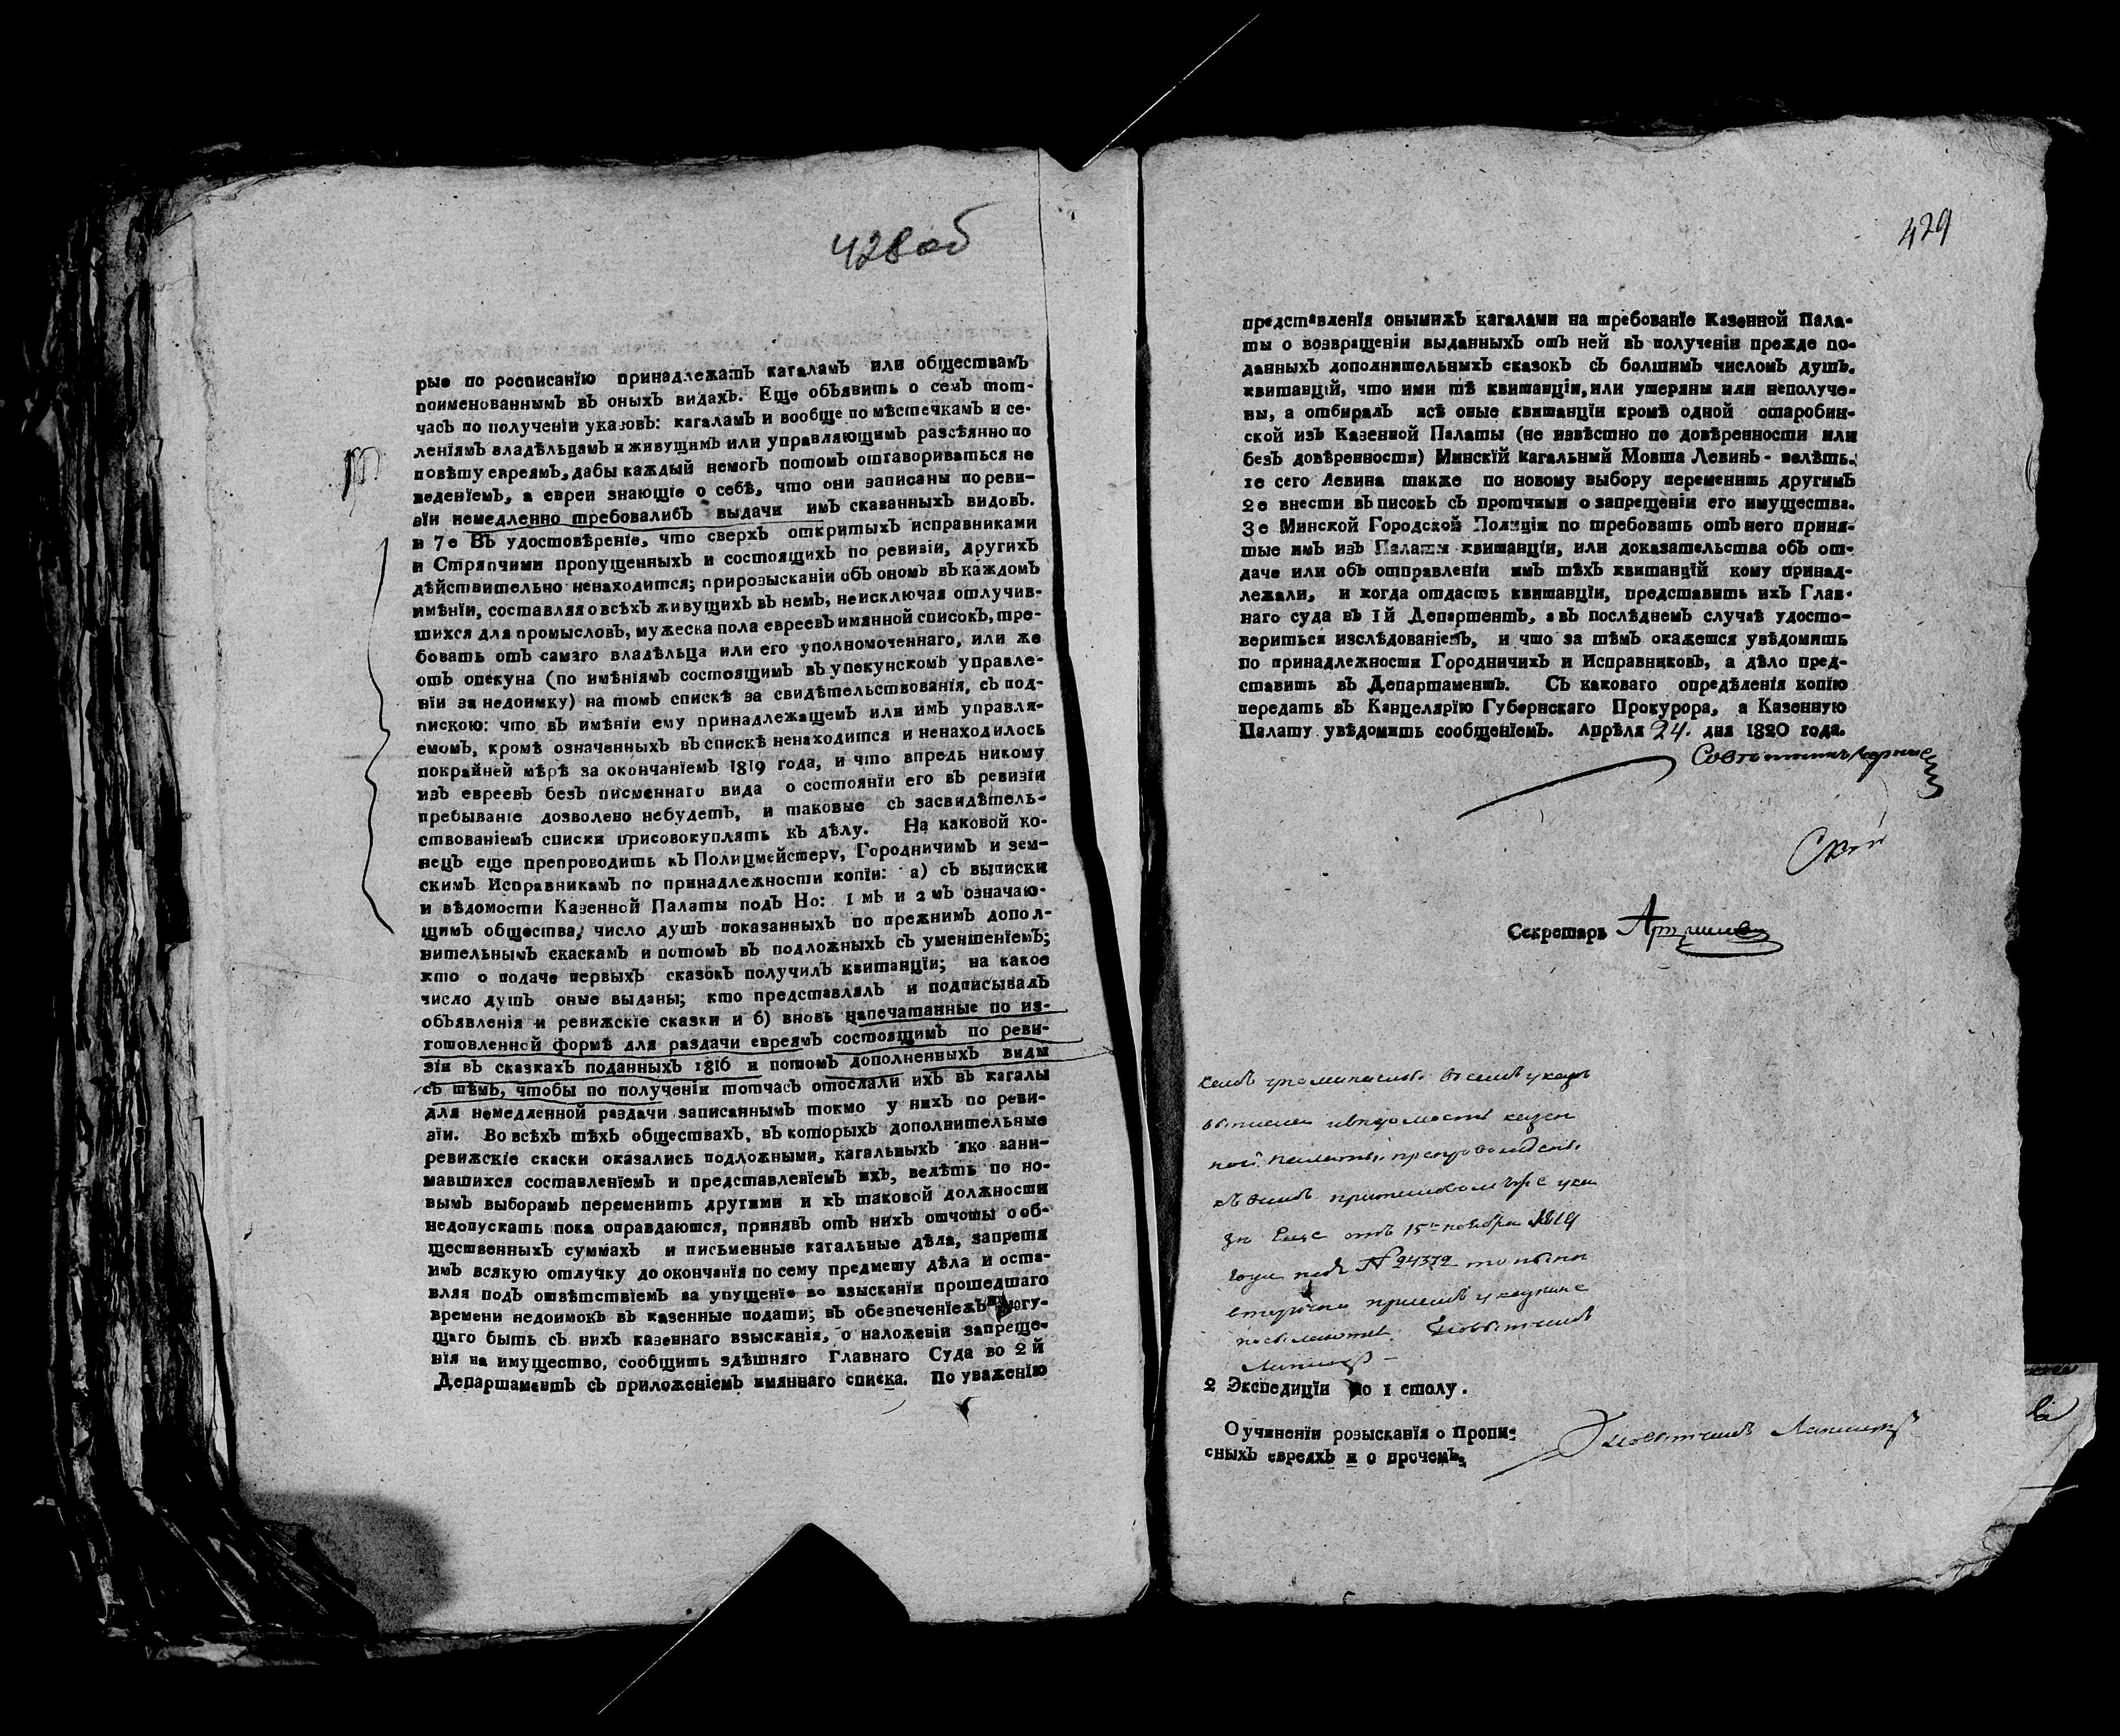 428об
рые по росписанїю принадлежатъ кагаламъ или обществамъ
поименованнымъ въ оныхъ видахъ. Еще объявить о семъ тот-
часъ по полученїи указовъ: кагаламъ и вообще по мѣстечкамъ и се-
ленїямъ владѣльцамъ и живущимъ или управляющимъ разсѣянно по
повѣту евреямъ, дабы каждый немогъ потомъ отговориваться не
веденїемъ, а евреи знающїе о себѣ, что они записаны по реви-
зїи немедленно требовалибъ выдачи имъ сказанныхъ видовъ.
и 7е Въ удостовѣренїе, что сверхъ откритыхъ исправниками
и Стряпчими пропущенныхъ и состоящихъ по ревизїи, другихъ
дѣйствительно ненаходится; прирозысканїи объ ономъ въ каждомъ
имѣнїи, составляя о всѣхъ живущихъ въ немъ, не исключая отлучив-
шихся для промысловъ, мужеска пола евреевъ имянной списокъ, тре-
бовать отъ самаго владѣльца или его уполномоченнаго, или же
отъ опекуна (по имѣнїямъ состоящимъ въ упекунскомъ управле-
нїи за недоимку) на томъ спискѣ за свидѣтельствованїя, съ под-
пискою: что въ имѣнїи ему принадлежащемъ или имъ управля-
емомъ, кромѣ означенныхъ въ спискѣ ненаходится и ненаходилось
покрайней мѣрѣ за окончанїемъ 1819 года, и что впредь никому
изъ евреевъ безъ писменнаго вида о состоянїи его въ ревизїи
пребыванїе дозволено небудетъ, и таковые съ засвидѣтель-
ствованїемъ списки присовокуплять къ дѣлу. На каковой ко-
нецъ еще препроводить къ Полицмейстеру, Городничимъ и зем-
скимъ Исправникамъ по принадлежности копїи: а) съ выписки
и вѣдомости Казенной Палаты подъ Но: 1 мъ и 2 мъ означаю-
щимъ общества, число душъ показанныхъ по прежнимъ допол-
нительнымъ скаскамъ и потомъ въ подложныхъ съ уменшенїемъ;
кто о подаче первыхъ сказокъ получилъ квитанцїи; на какое
число душъ оные выданы; кто представлялъ и подписывалъ
объявленїя и ревижскїе сказки и б) вновь напечатанные по из-
готовленной формѣ для раздачи евреямъ состоящимъ по реви-
зїи въ сказкахъ поданныхъ 1816 и потомъ дополненныхъ виды
съ тѣмъ, чтобы по полученїи тотчасъ отослали ихъ въ кагалы
для немедленной раздачи записаннымъ токмо у нихъ по реви-
зїи. Во всѣхъ тѣхъ обществахъ, въ которыхъ дополнительные
ревижскїе скаски оказались подложными, кагальныхъ яко зани-
мавшихся составленїемъ и представленїемъ ихъ, велѣть по но-
вымъ выборамъ переменить другими и къ таковой должности
недопускать пока оправдаются, принявъ отъ нихъ отчоты о об-
щественныхъ суммахъ и письменные кагальные дѣла, запретя
имъ всякую отлучку до окончанїя по сему предмету дѣла и оста-
вля подъ отвѣтствїемъ за упущенїе во взысканїи прошедшаго
времени недоимокъ въ казенные подати; въ обезпеченїежъ могу-
щаго быть съ нихъ казеннаго взысканїя, о наложенїи запреще-
нїя на имущество, сообщить здѣшняго Главнаго Суда во 2 й
Департаментъ съ приложенїемъ имяннаго списка. По уваженїю
429
представленїя онымижъ кагалами на требованїе Казенной Пала-
ты о возвращенїи выданныхъ отъ ней въ полученїи прежде по-
данныхъ дополнительныхъ сказокъ съ болшимъ числомъ душъ.
квитанцїй, что ими тѣ квитанцїи, или утеряны или неполуче-
ны, а отбиралъ всѣ оные квитанцїи кроме одной старобин-
ской изъ Казенной Палаты (не извѣстно по довѣренности или
безъ довѣренности) Минскїй кагальный Мовша Левинъ - велѣть.
1е сего Левина также по новому выбору переменить другимъ
2е внести въ писокъ съ протчими о запрещенїи его имущества.
3е Минской Городской Полицїи по требовать отъ него приня-
тые имъ изъ Палаты квитанцїи, или доказательства объ от-
даче или объ отправленїи имъ тѣхъ квитанцїй кому принад-
лежали, и когда отдастъ квитанцїи, представить ихъ Глав-
наго суда въ 1й Департентъ, а въ послѣднемъ случаѣ удосто-
вериться изслѣдованїемъ, и что за тѣмъ окажется увѣдомить
по принадлежности Городничихъ и Исправниковъ, а дѣло пред-
ставить въ Департаментъ. Съ каковаго опредѣленїя копїю
передать въ Канцелярїю Губернскаго Прокурора, а Казенную
Палату увѣдомить сообщенїемъ. Апрѣля 24. дня 1820 года.
Секретарь
отъ 15 ноября 1819
года подъ № 24372
2 Экспедицїи по 1 столу.
О учиненїи розысканїя о Пропи-
сныхъ евреяхъ и о прочемъ.